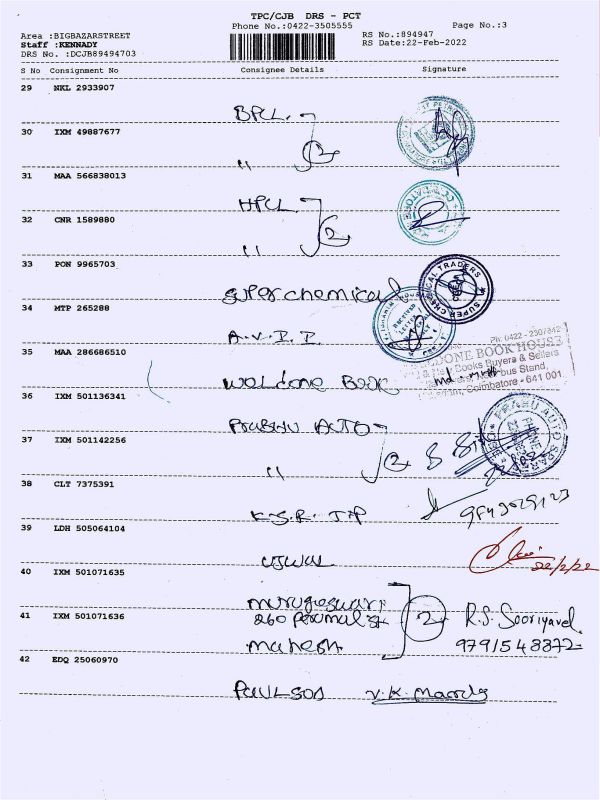 TPC/CJB DRS - PCT
Phone No.:0422-3505555
Page No.:3
Area :BIGBAZARSTREET
RS No.:894947
Staff :KENNADY
RS Date:22-Feb-2022
DRS No. :DCJB89494703
S No Consignment No Consignee Details Signature
29 NKL 2933907
BPCL.
30 IXM 49887677
" 2
31 MAA 566838013
HPCL
32 CNR 1589880
" 2
33 PON 9965703
Super chemical
SUPER CHEMICAL TRADERS
34 MTP 265288
A.V.I.I
35 MAA 286686510
Ph: 0422 - 230/342
WELDONE BOOK HOUSE
Books Buyers & Sellers
bus Stand,
Coimbatore - 641 001
Weldone Book
36 IXM 501136341
Prabhu AUTO
PRABHU AUTO SPARES
PHONE
37 IXM 501142256
" 2
38 CLT 7375391
K.S.R.
39 LDH 505064104
UJWAL
22/2/22
40 IXM 501071635
Murugeswari
260 Perumal st
2 R.S. Sooriyavel
41 IXM 501071636
Mahesh
9791548872
42 EDQ 25060970
PAULSOS V.K.